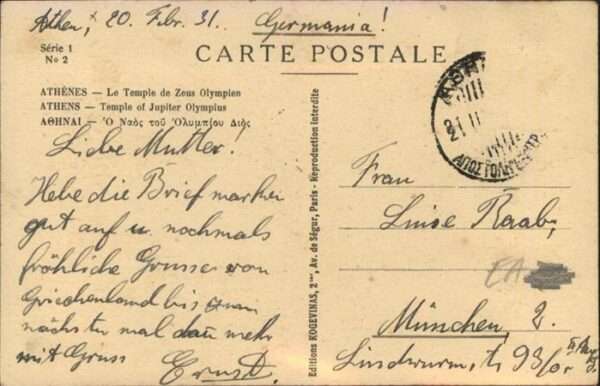 Athen, 20. Febr. 31.
Germania!
CARTE POSTALE
Série 1
No 2
ATHÈNES — Le Temple de Zeus Olympien
ATHENS — Temple of Jupiter Olympius
ΑΘΗΝΑΙ — Ὁ Ναὸς τοῦ Ὀλυμπίου Διὸς
Liebe Mutter!
Hebe die Briefmarken
gut auf u. nochmals
fröhliche Grüsse von
Griechenland bis zum
nächsten mal dann mehr
mit Gruss
Ernst.
Editions KOGEVINAS, 2 Av. de Ségur, Paris - Reproduction interdite
21 II
Frau
Luise Raab,
München, 2.
Lindwurm, 93/0.